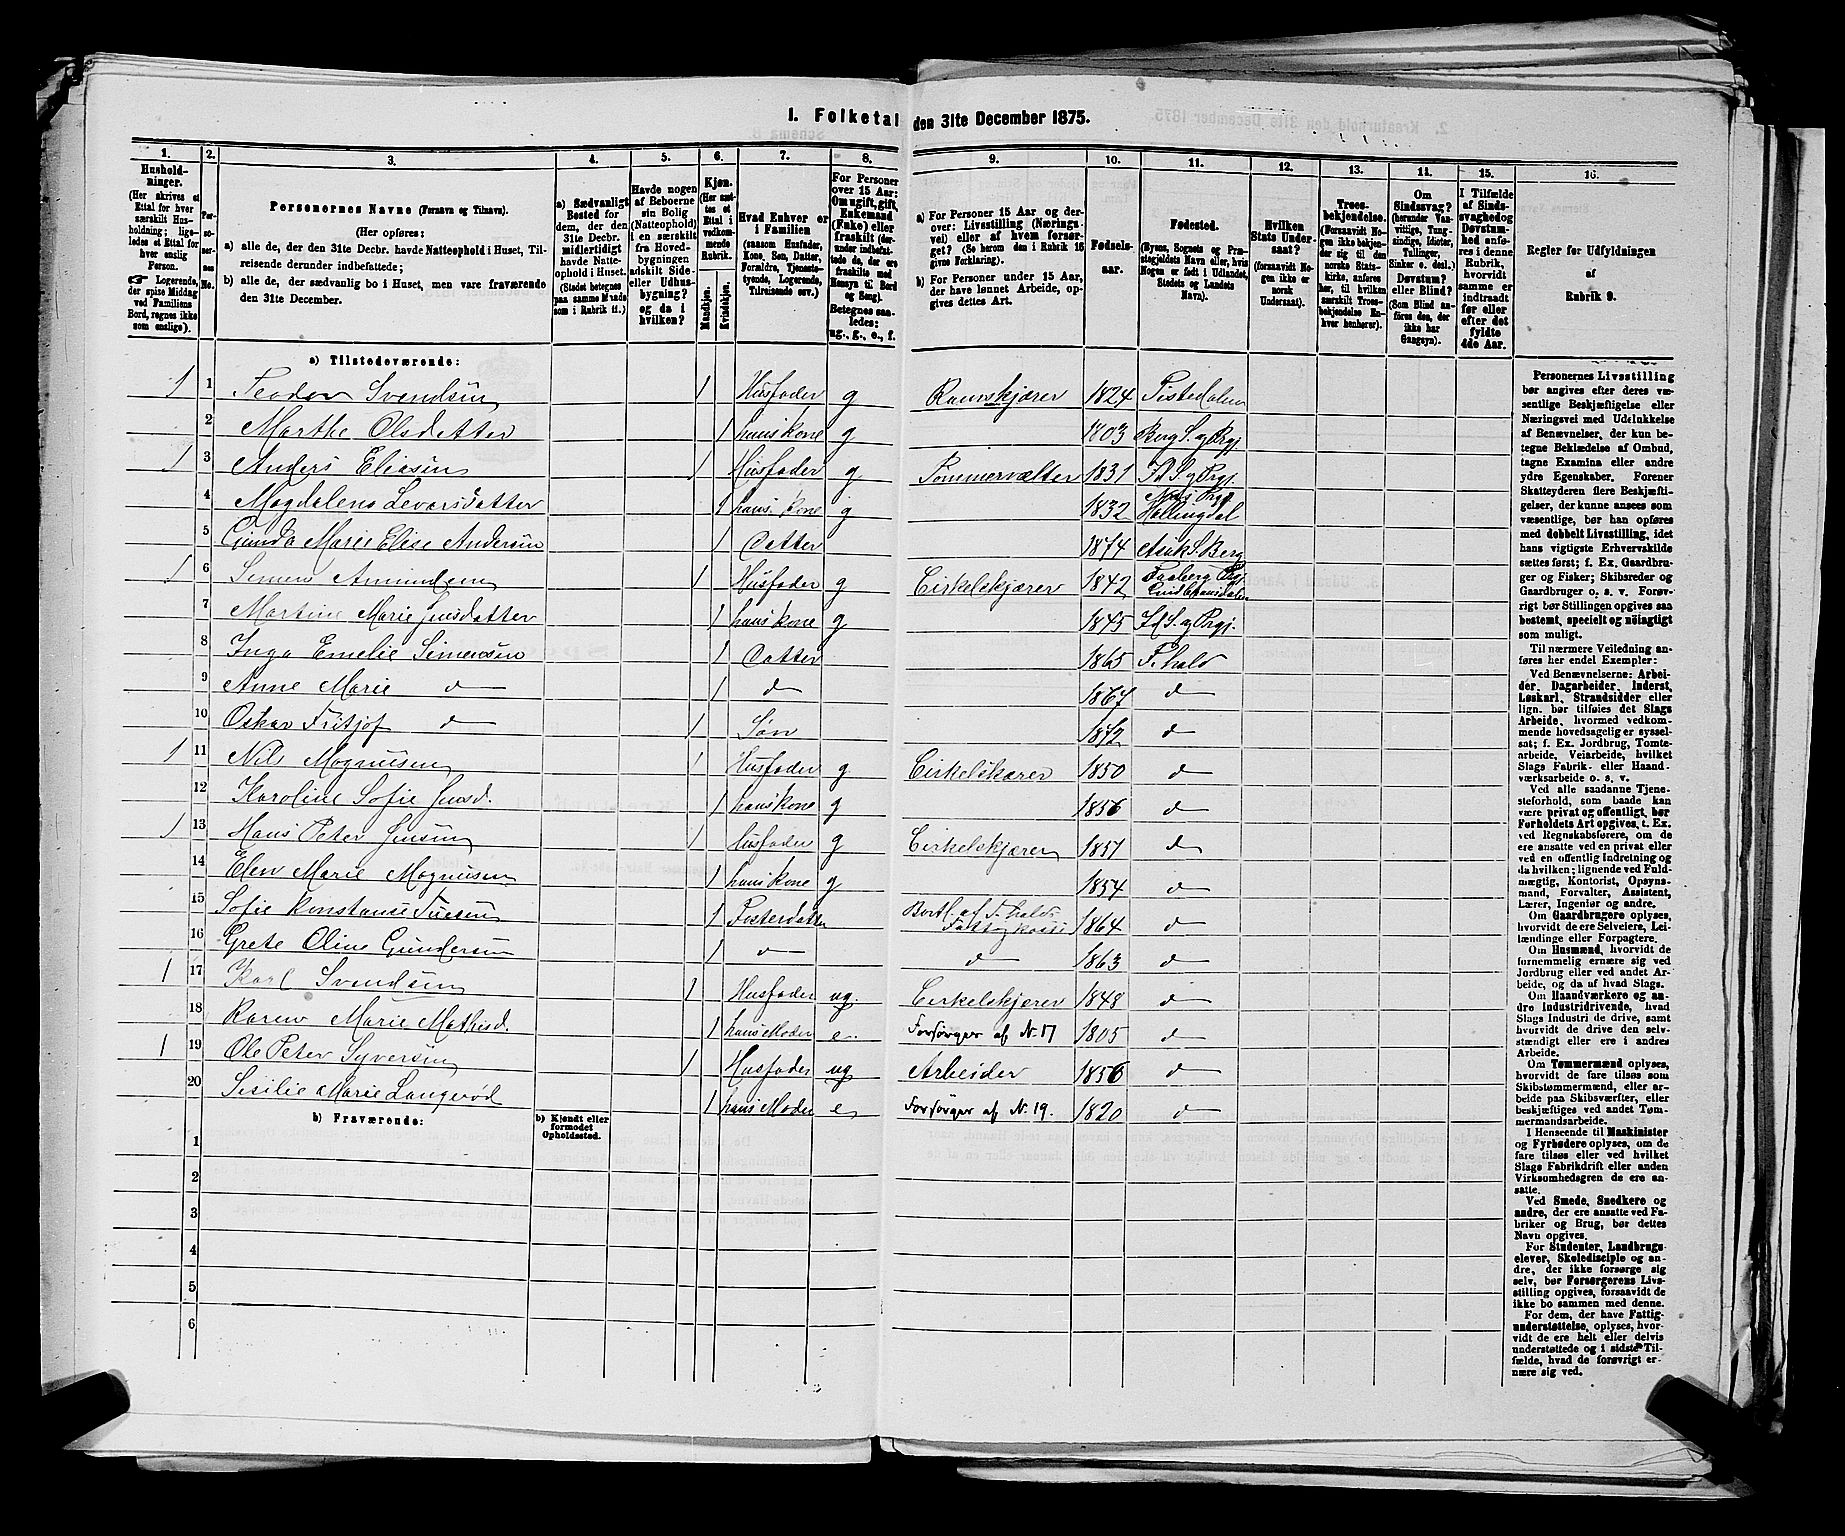 1. Folketal den 31te December 1875.
1. 2. 3. 4. 5. 6. 7. 8. 9. 10. 11. 12. 13. 14. 15. 16.
Husholdninger.
(Her skrives et
Ettal for hver
særskilt Husholdning; ligeledes
et Ettal for
hver enslig
Person.
☞ Logerende,
der spise Middag
ved Familiens
Bord, regnes ikke
som enslige).
Personernes No.
Personernes Navne (Fornavn og Tilnavn).
(Her opføres:
a) alle de, der den 31te Decbr. havde Natteophold i Huset, Tilreisende
derunder indbefattede;
b) alle de, der sædvanlig bo i Huset, men vare fraværende
den 31te December.
a) Sædvanligt
Bosted for
dem, der den
31te Decbr.
midlertidigt
havde Natteophold
i Huset.
(Stedet betegnes
paa samme Maade
som i Rubrik 11.)
Havde nogen
af Beboerne
sin Bolig
(Natteophold)
i en særskilt
fra Hovedbygningen
adskilt Side-
eller Udhusbygning?
og da i
hvilken?
Kjøn.
(Her sættes
et Ettal i
vedkommende
Rubrik.
Mandkjøn.
Kvindekjøn.
Hvad Enhver er
i Familien
(saasom Husfader,
Kone, Søn, Datter,
Forældre, Tjenestetyende,
Logerende,
Tilreisende osv.)
For Personer
over 15 Aar:
Om ugift, gift,
Enkemand
(Enke) eller
fraskilt (derunder
indbefattede
de, der ere
fraskilte med
Hensyn til Bord
og Seng).
Betegnes saaledes:
ug., g., e., f.
a) For Personer 15 Aar og derover:
Livsstilling (Næringsvei)
eller af hvem forsørget?
(Se herom den i Rubrik 16
givne Forklaring).
b) For Personer under 15 Aar,
der have lønnet Arbeide, opgives
dettes Art.
Fødselsaar.
Fødested.
(Byens, Sognets og Præstegjeldets
Navn eller, hvis
Nogen er født i Udlandet,
Stedets og Landets
Navn).
Hvilken
Stats Undersaat?
(forsaavidt Nogen
ikke er
norsk
Undersaat).
Troesbekjendelse.
(Forsaavidt Nogen
ikke bekjender
sig til den
norske Statskirke,
anføres
her, til hvilken
særskilt Troesbekjendelse
Enhver
henhører).
Om
Sindssvag?
(herunder Vanvittige,
Tungsindige,
Idioter,
Tullinger,
Sinker o. desl.)
Døvstum?
eller Blind?
(Som Blind anføres
den, der
ikke har
Gangsyn).
I Tilfælde
af Sindssvaghed
og
Døvstumhed
anføres
i denne
Rubrik,
hvorvidt
samme er
indtraadt
før eller
efter det
fyldte
4de Aar.
Regler for Udfyldningen
af
Rubrik 9.
a) Tilstedeværende:
1 1 Teodor Svendsen 1 Husfader g Ravnskjærer 1824 Tistedalen
2 Marthe Olsdatter 1 hans Kone g 1803 Berg S. og Prgj.
1 3 Anders Eliasen 1 Husfader g Tømmervælter 1831 Id S. og Prgj.
4 Magdalena Levorsdatter 1 hans Kone g 1832 Næs Prgj. Hallingdal
5 Gunda Marie Elise Andersen 1 Datter 1874 Asak S. Berg
1 6 Simen Amundsen 1 Husfader g Cirkelskjærer 1842 Faaberg Prgj. Gudbransdalen
7 Martine Marie Jensdatter 1 hans Kone g 1845 Id S. og Prgj.
8 Inga Emelie Simensen 1 Datter 1865 F.hald
9 Anne Marie d 1 d 1867 d
10 Oskar Fritjof d 1 Søn 1872 d
1 11 Nils Magnusen 1 Husfader g Cirkelskærer 1850 d
12 Karoline Sofie Jensd. 1 hans Kone g 1856 d
1 13 Hans Peter Jensen 1 Husfader g Cirkelskjærer 1851 d
14 Elen Marie Magnusen 1 hans Kone g 1854 d
15 Sofie Konstanse 1 Fosterdatter Bortl. af F.halds Fattigkasse 1864 d
16 Grete Oline Gundersen 1 d d 1863 d
1 17 Karl Svendsen 1 Husfader ug. Cirkelskjærer 1848 d
18 Karen Marie Mathisd. 1 hans Moder e. Forsørges af N. 17 1805 d
1 19 Ole Peter Syversen 1 Husfader ug Arbeider 1856 d
20 Sesilie Marie Langerød 1 hans Moder e Forsørges af N. 19. 1820 d
b) Fraværende:
b) Kjendt eller
formodet
Opholdssted.
1
2
3
4
5
6
Personernes Livsstilling
bør angives efter deres væsentlige
Beskjæftigelse eller
Næringsvei med Udelukkelse
af Benævnelser, der kun betegne
Beklædelse af Ombud,
tagne Examina eller andre
ydre Egenskaber. Forener
Skatteyderen flere Beskjæftigelser,
der kunne ansees som
væsentlige, bør han opføres
med dobbelt Livsstilling, idet
hans vigtigste Erhvervskilde
sættes først; f. Ex. Gaardbruger
og Fisker; Skibsreder og
Gaardbruger o. s. v. Forøvrigt
bør Stillingen opgives saa
bestemt, specielt og nöiagtigt
som muligt.
Til nærmere Veiledning anføres
her endel Exempler:
Ved Benævnelserne: Arbeider,
Dagarbeider, Inderst,
Løskarl, Strandsidder eller
lign. bør tilføies det Slags
Arbeide, hvormed vedkommende
hovedsagelig er sysselsat;
f. Ex. Jordbrug, Tomtearbeide,
Veiarbeide, hvilket
Slags Fabrik- eller Haandværksarbeide
o. s. v.
Ved alle saadanne Tjenesteforhold,
som baade kan
være privat og offentligt, bør
Forholdets Art opgives, t. Ex.
ved Regnskabsførere, om de
ere ansatte ved en privat eller
ved en offentlig Indretning og
da hvilken; lignende ved Fuldmægtig,
Kontorist, Opsynsmand,
Forvalter, Assistent,
Lærer, Ingeniør og andre.
Om Gaardbrugere oplyses,
hvorvidt de ere Selveiere, Leilændinge
eller Forpagtere.
Om Husmænd, hvorvidt de
fornemmelig ernære sig ved
Jordbrug eller ved andet Arbeide,
og da af hvad Slags.
Om Haandværkere og andre
Industridrivende, hvad
Slags Industri de drive, samt
hvorvidt de drive den selvstændigt
eller ere i andres
Arbeide.
Om Tømmermænd oplyses,
hvorvidt de fare tilsøs som
Skibstømmermænd, eller arbeide
paa Skibsværfter, eller
beskjæftiges ved andet Tømmermandsarbeide.
I Henseende til Maskinister
og Fyrbødere oplyses, om de
fare tilsøs eller ved hvilket
Slags Fabrikdrift eller anden
Virksomhedsgren de ere ansatte.
Ved Smede, Snedkere og
andre, der ere ansatte ved Fabriker
og Brug, bør dettes
Navn opgives.
For Studenter, Landbrugselever,
Skoledisciple og andre,
der ikke forsørge sig
selv, bør Forsørgerens Livsstilling
opgives, forsaavidt de
ikke bo sammen med denne.
For dem, der have Fattigunderstøttelse,
oplyses, hvorvidt
de ere helt eller delvis
understøttede og i sidste Tilfælde,
hvad de forøvrigt ernære
sig ved.